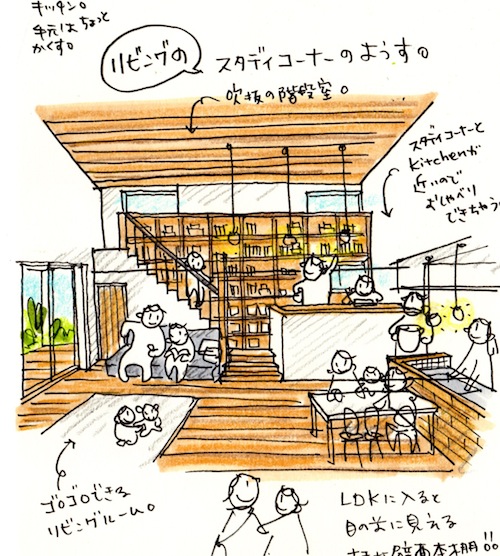 キッチン。
手元はちょっと
かくす。
リビングの スタディコーナーのようす。
吹抜の階段室。
スタディコーナーと
Kitchenが
近いので
おしゃべり
できちゃう
ゴロゴロできる
リビングルーム。
LDKに入ると
目の前に見える
本棚!!